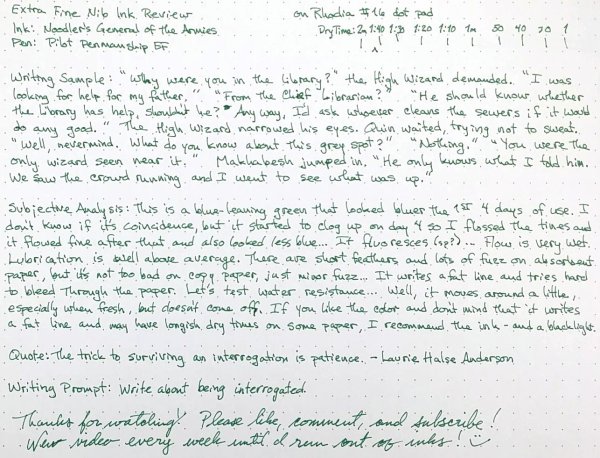 Extra Fine Nib Ink Review on Rhodia #16 dot pad
Ink: Noodler's General of the Armies Dry Time: 2m 1:40 1:30 1:20 1:10 1m 50 40 20 1
Pen: Pilot Penmanship EF
Writing Sample: "Why were you in the library?" the High Wizard demanded. "I was
looking for help for my father." "From the Chief Librarian?" "He should know whether
the library has help, shouldn't he? Anyway, I'd ask whoever cleans the sewers if it would
do any good." The High Wizard narrowed his eyes. Quin waited, trying not to sweat.
"Well, nevermind. What do you know about this grey spot?" "Nothing." "You were the
only wizard seen near it." Makhabesh jumped in. "He only knows what I told him.
We saw the crowd running and I went to see what was up."
Subjective Analysis: This is a blue-leaning green that looked bluer the 1st 4 days of use. I
don't know if it's coincidence, but it started to clog up on day 4 so I flossed the tines and
it flowed fine after that and also looked less blue... It fluoresces (sp?)... Flow is very wet.
Lubrication is well above average. There are short feathers and lots of fuzz on absorbent
paper, but it's not too bad on copy paper, just minor fuzz... It writes a fat line and tries hard
to bleed through the paper. Let's test water resistance... Well, it moves around a little,
especially when fresh, but doesn't come off. If you like the color and don't mind that it writes
a fat line and may have longish dry times on some paper, I recommend the ink - and a blacklight.
Quote: The trick to surviving an interrogation is patience. - Laurie Halse Anderson
Writing Prompt: Write about being interrogated.
Thanks for watching! Please like, comment, and subscribe!
New video every week until I run out of inks!